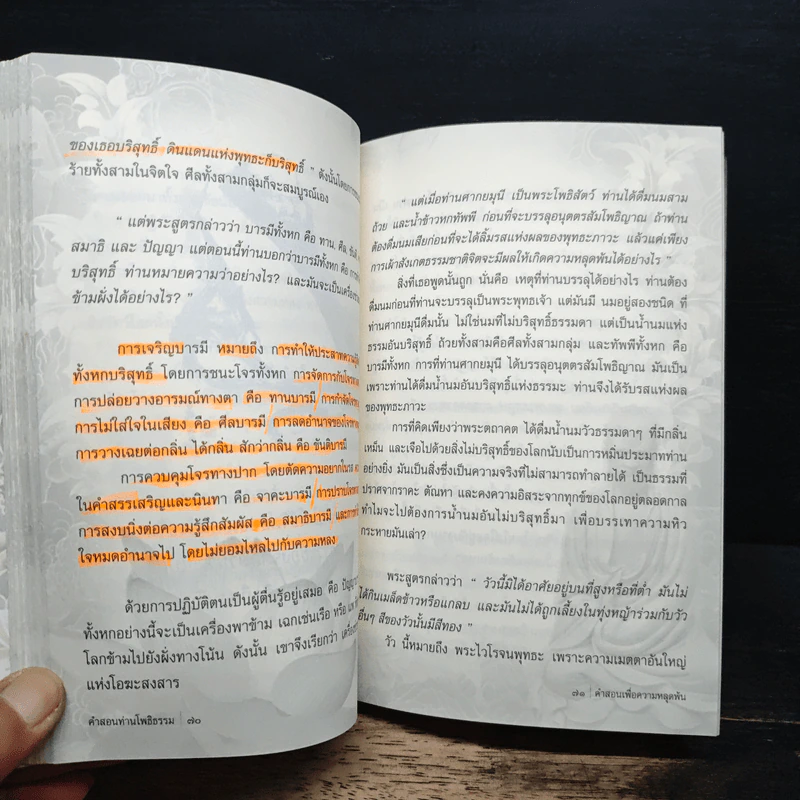 ของเธอบริสุทธิ์ ดินแดนแห่งพุทธะก็บริสุทธิ์ " ดังนั้นโดยการ
ร้ายทั้งสามในจิตใจ ศีลทั้งสามกลุ่มก็จะสมบูรณ์เอง
" แต่พระสูตรกล่าวว่า บารมีทั้งหก คือ ทาน ศีล
สมาธิ และ ปัญญา แต่ตอนนี้ท่านบอกว่าบารมีทั้งหก คือ
บริสุทธิ์ ท่านหมายความว่าอย่างไร? และมันจะเป็นเครื่อง
ข้ามฝั่งได้อย่างไร? "
การเจริญบารมี หมายถึง การทำให้ประสาทความรู้
ทั้งหกบริสุทธิ์ โดยการชนะโจรทั้งหก การจัดการกับโจร
การปล่อยวางอารมณ์ทางตา คือ ทานบารมี/ การกำจัดโจร
การไม่ใส่ใจในเสียง คือ ศีลบารมี/ การลดอำนาจของโจร
การวางเฉยต่อกลิ่น ได้กลิ่น สักว่ากลิ่น คือ ขันติบารมี
การควบคุมโจรทางปาก โดยตัดความอยากในรส
ในคำสรรเสริญและนินทา คือ จาคะบารมี/ การปราบโจร
การสงบนิ่งต่อความรู้สึกสัมผัส คือ สมาธิบารมี และการ
ใจหมดอำนาจไป โดยไม่ยอมไหลไปกับความหลง
ด้วยการปฏิบัติตนเป็นผู้ตื่นรู้อยู่เสมอ คือ ปัญญา
ทั้งหกอย่างนี้จะเป็นเครื่องพาข้าม เฉกเช่นเรือ หรือ แพ
โลกข้ามไปยังฝั่งทางโน้น ดังนั้น เขาจึงเรียกว่า
แห่งโอฆะสงสาร
คำสอนท่านโพธิธรรม | ๗๐
" แต่เมื่อท่านศากยมุนี เป็นพระโพธิสัตว์ ท่านได้ดื่มนมสาม
ถ้วย และน้ำข้าวหกทัพพี ก่อนที่จะบรรลุอนุตตรสัมโพธิญาณ ถ้าท่าน
ต้องดื่มนมเสียก่อนที่จะได้ลิ้มรสแห่งผลของพุทธะภาวะ แล้วแค่เพียง
การเฝ้าสังเกตธรรมชาติจิตจะมีผลให้เกิดความหลุดพ้นได้อย่างไร "
สิ่งที่เธอพูดนั้นถูก นั่นคือ เหตุที่ท่านบรรลุได้อย่างไร ท่านต้อง
ดื่มนมก่อนที่ท่านจะบรรลุเป็นพระพุทธเจ้า แต่มันมี นมอยู่สองชนิด ที่
ท่านศากยมุนีดื่มนั้น ไม่ใช่นมที่ไม่บริสุทธิ์ธรรมดา แต่เป็นน้ำนมแห่ง
ธรรมอันบริสุทธิ์ ถ้วยทั้งสามคือศีลทั้งสามกลุ่ม และทัพพีทั้งหก คือ
บารมีทั้งหก การที่ท่านศากยมุนี ได้บรรลุอนุตตรสัมโพธิญาณ มันเป็น
เพราะท่านได้ดื่มน้ำนมอันบริสุทธิ์แห่งธรรมะ ท่านจึงได้รับรสแห่งผล
ของพุทธะภาวะ
การที่คิดเพียงว่าพระตถาคต ได้ดื่มน้ำนมวัวธรรมดาๆ ที่มีกลิ่น
เหม็น และเจือไปด้วยสิ่งไม่บริสุทธิ์ของโลกนับเป็นการหมิ่นประมาทท่าน
อย่างยิ่ง มันเป็นสิ่งซึ่งเป็นความจริงที่ไม่สามารถทำลายได้ เป็นธรรมที่
ปราศจากราคะ ตัณหา และคงความอิสระจากทุกข์ของโลกอยู่ตลอดกาล
ทำไมจะไปต้องการน้ำนมอันไม่บริสุทธิ์มา เพื่อบรรเทาความหิว
กระหายมันเล่า?
พระสูตรกล่าวว่า " วัวนี้มิได้อาศัยอยู่บนที่สูงหรือที่ต่ำ มันไม่
ได้กินเมล็ดข้าวหรือแกลบ และมันไม่ได้ถูกเลี้ยงในทุ่งหญ้าร่วมกับวัว
อื่นๆ สีของวัวนั้นมีสีทอง "
วัว นี้หมายถึง พระไวโรจนพุทธะ เพราะความเมตตาอันใหญ่
๗๑ | คำสอนเพื่อความหลุดพ้น